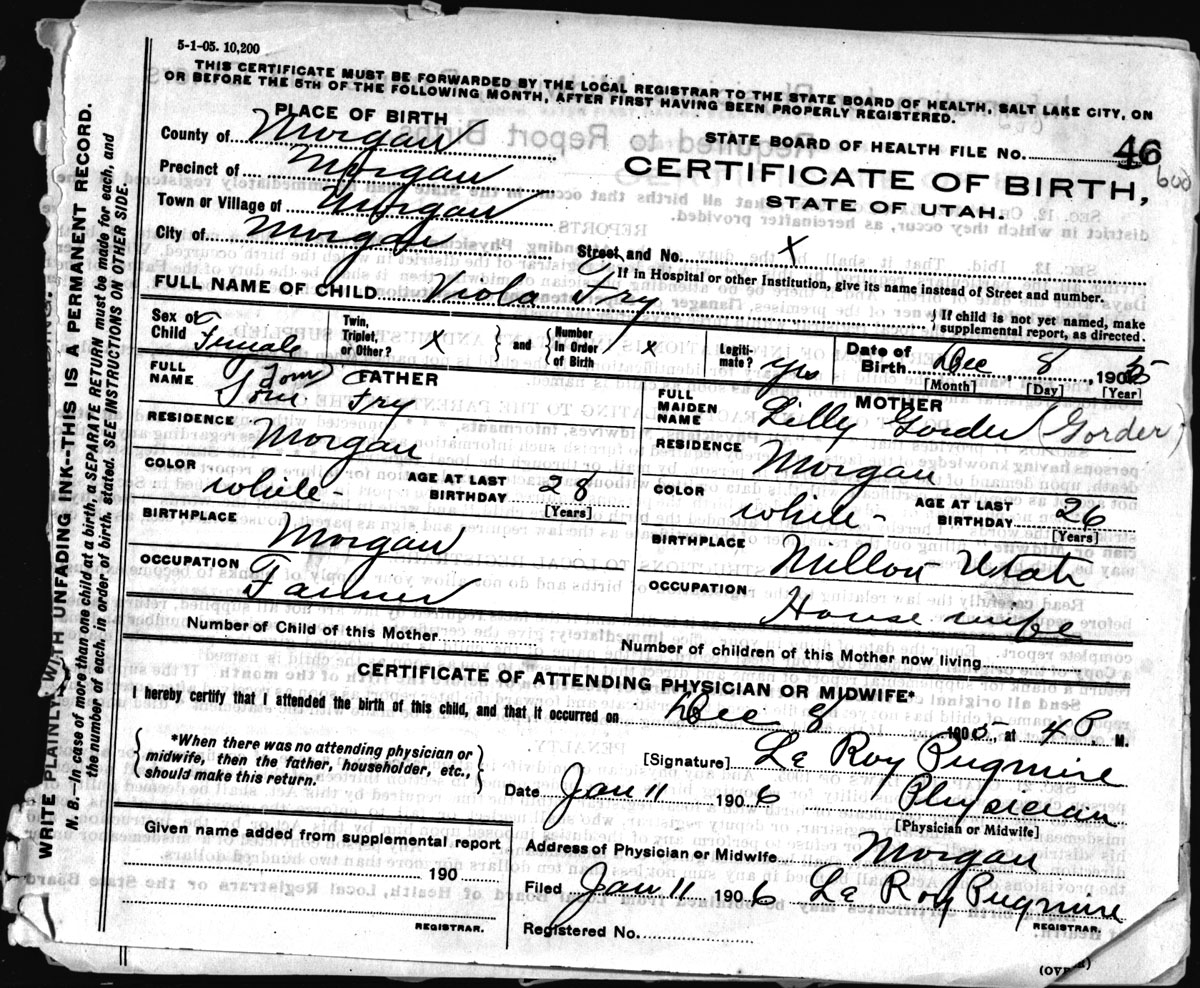 5-1-05. 10,200
THIS CERTIFICATE MUST BE FORWARDED BY THE LOCAL REGISTRAR TO THE STATE BOARD OF HEALTH, SALT LAKE CITY, ON
OR BEFORE THE 5TH OF THE FOLLOWING MONTH, AFTER FIRST HAVING BEEN PROPERLY REGISTERED.
PLACE OF BIRTH
County of Morgan
Precinct of Morgan
Town or Village of Morgan
City of Morgan
STATE BOARD OF HEALTH FILE No. 46
600
CERTIFICATE OF BIRTH,
STATE OF UTAH.
Street and No. X
If in Hospital or other Institution, give its name instead of Street and number.
FULL NAME OF CHILD Viola Fry
{ If child is not yet named, make supplemental report, as directed.
Sex of Child Female
Twin, Triplet, or Other? X } and { Number In Order of Birth X
Legitimate? yes
Date of Birth Dec 8 1905
[Month] [Day] [Year]
FATHER
FULL NAME Tom Fry
Tom
RESIDENCE Morgan
COLOR white
AGE AT LAST BIRTHDAY 28
[Years]
BIRTHPLACE Morgan
OCCUPATION Farmer
MOTHER
FULL MAIDEN NAME Lilly Gorder (Gorder)
RESIDENCE Morgan
COLOR white
AGE AT LAST BIRTHDAY 26
[Years]
BIRTHPLACE Milton Utah
OCCUPATION House wife
Number of Child of this Mother
Number of children of this Mother now living
CERTIFICATE OF ATTENDING PHYSICIAN OR MIDWIFE*
I hereby certify that I attended the birth of this child, and that it occurred on Dec 8 1905, at 4 P. M.
{ *When there was no attending physician or midwife, then the father, householder, etc., should make this return. }
[Signature] Le Roy Pugmire
Date Jan 11 1906 Physician
[Physician or Midwife]
Given name added from supplemental report
190
REGISTRAR.
Address of Physician or Midwife Morgan
Filed Jan 11 1906 Le Roy Pugmire
REGISTRAR.
Registered No.
WRITE PLAINLY WITH UNFADING INK--THIS IS A PERMANENT RECORD.
N. B.--In case of more than one child at a birth, a SEPARATE RETURN must be made for each, and
the number of each, in order of birth, stated. SEE INSTRUCTIONS ON OTHER SIDE.